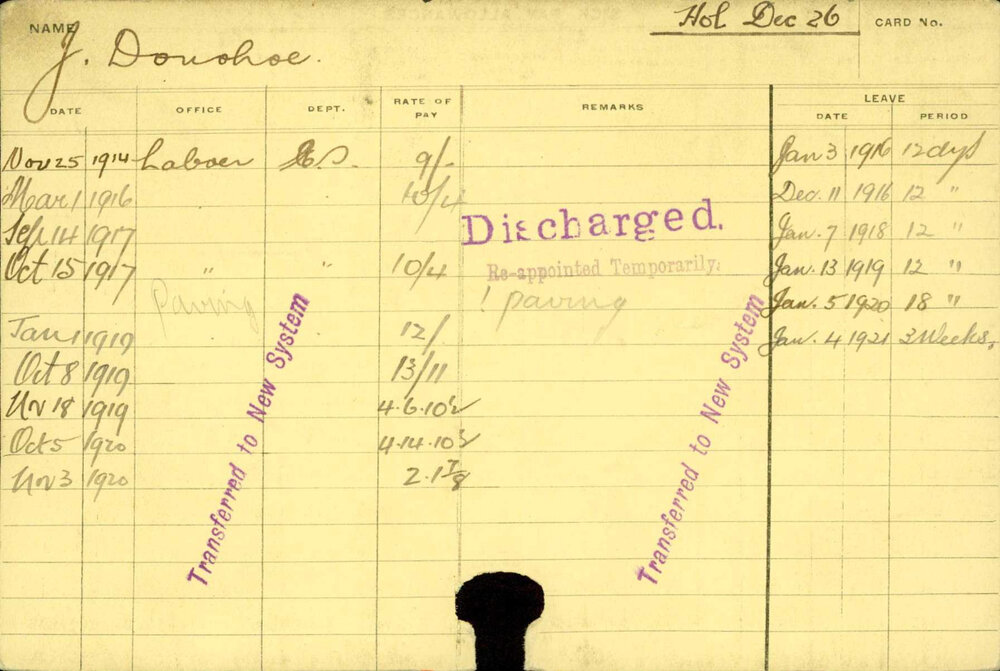 Hol Dec 26
NAME CARD No.
J. Donohoe.
DATE OFFICE DEPT. RATE OF PAY REMARKS LEAVE
DATE PERIOD
Nov 25 1914 Laboer S. 9/- Jan 3 1916 12 dys
Mar 1 1916 10/4 Dec. 11 1916 12 "
Discharged.
Sep 14 1917 Jan. 7 1918 12 "
Oct 15 1917 " " 10/4 Re-appointed Temporarily. Jan. 13 1919 12 "
Paving ! paving Jan. 5 1920 18 "
Jan 1 1919 12/ Jan. 4 1921 3 Weeks.
Oct 8 1919 13/11
Nov 18 1919 4.6.10½
Oct 5 1920 4.14.10½
Nov 3 1920 2.1⅞
Transferred to New System
Transferred to New System